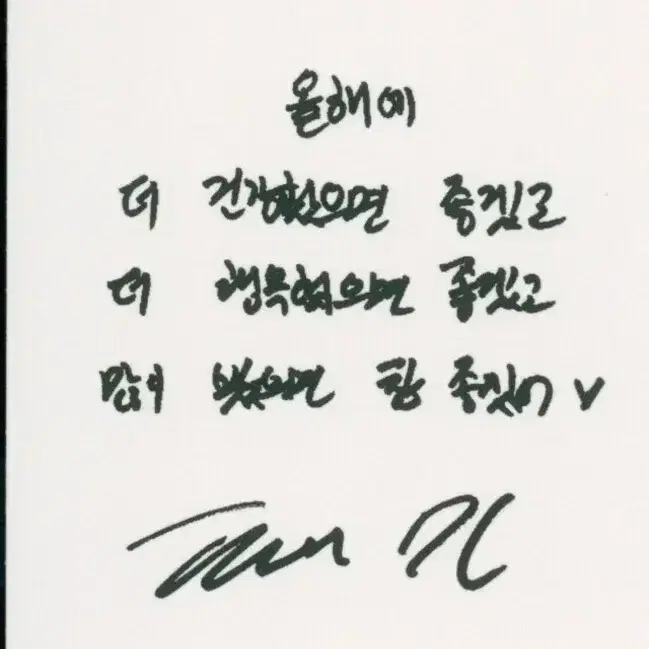 올해에
더 건강했으면 좋겠고
더 행복했으면 좋겠고
많이 웃었으면 참 좋겠어 v